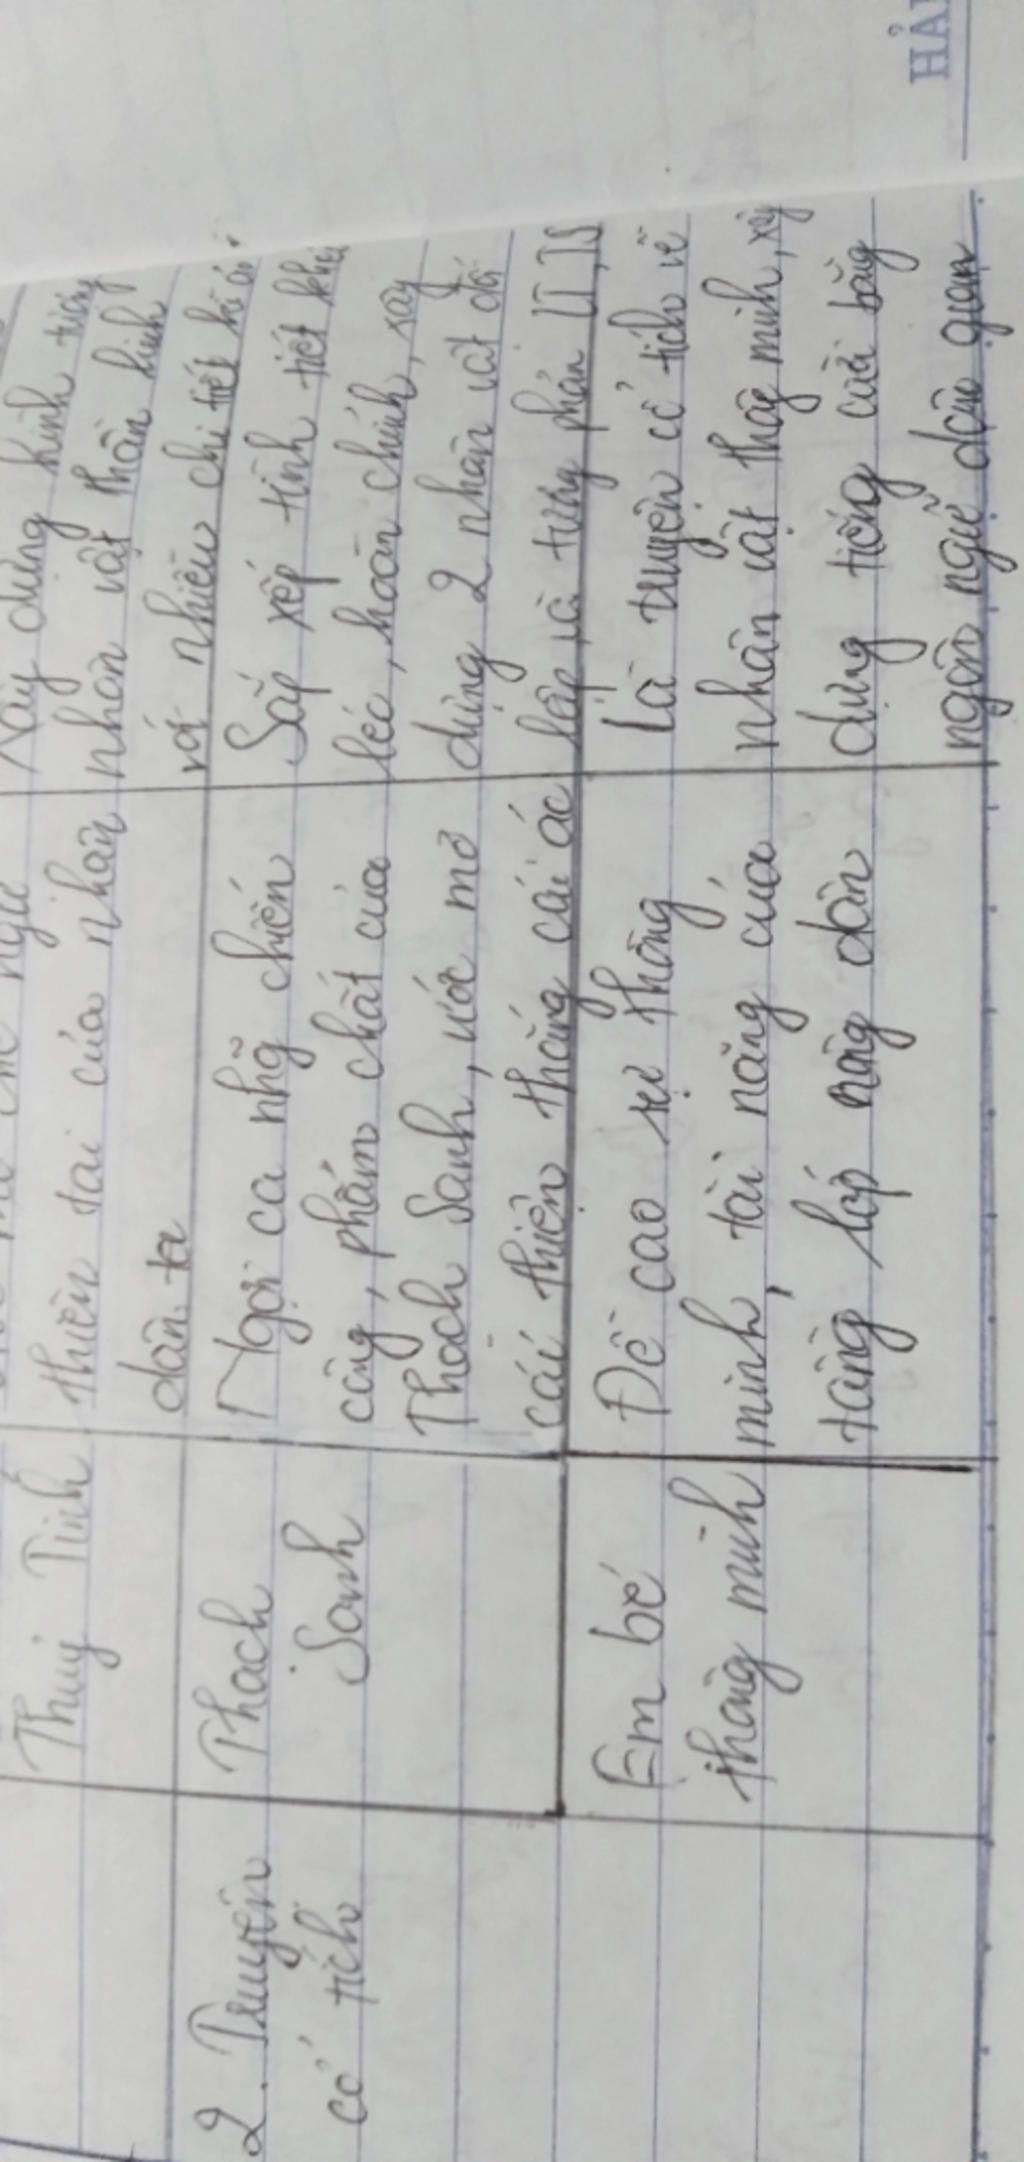 xây dựng hình tượng
Thuỷ Tinh thiên tai của nhân nhân vật thần kinh
dân ta với nhiều chi tiết kì ảo.
2. Truyện Thạch Ngợi ca nhg chiến Sắp xếp tình tiết khéo
cổ tích Sanh công, phẩm chất của léo, hoàn chỉnh, xây
Thạch Sanh, ước mơ dựng 2 nhân vật đối
cái thiện thắng cái ác lập và tương phản LT, TS
Em bé Đề cao sự thông Là truyện cổ tích về
thông minh minh, tài năng của nhân vật thông minh, xây
tầng lớp nông dân dựng tiếng cười bằng
ngôn ngữ dân gian